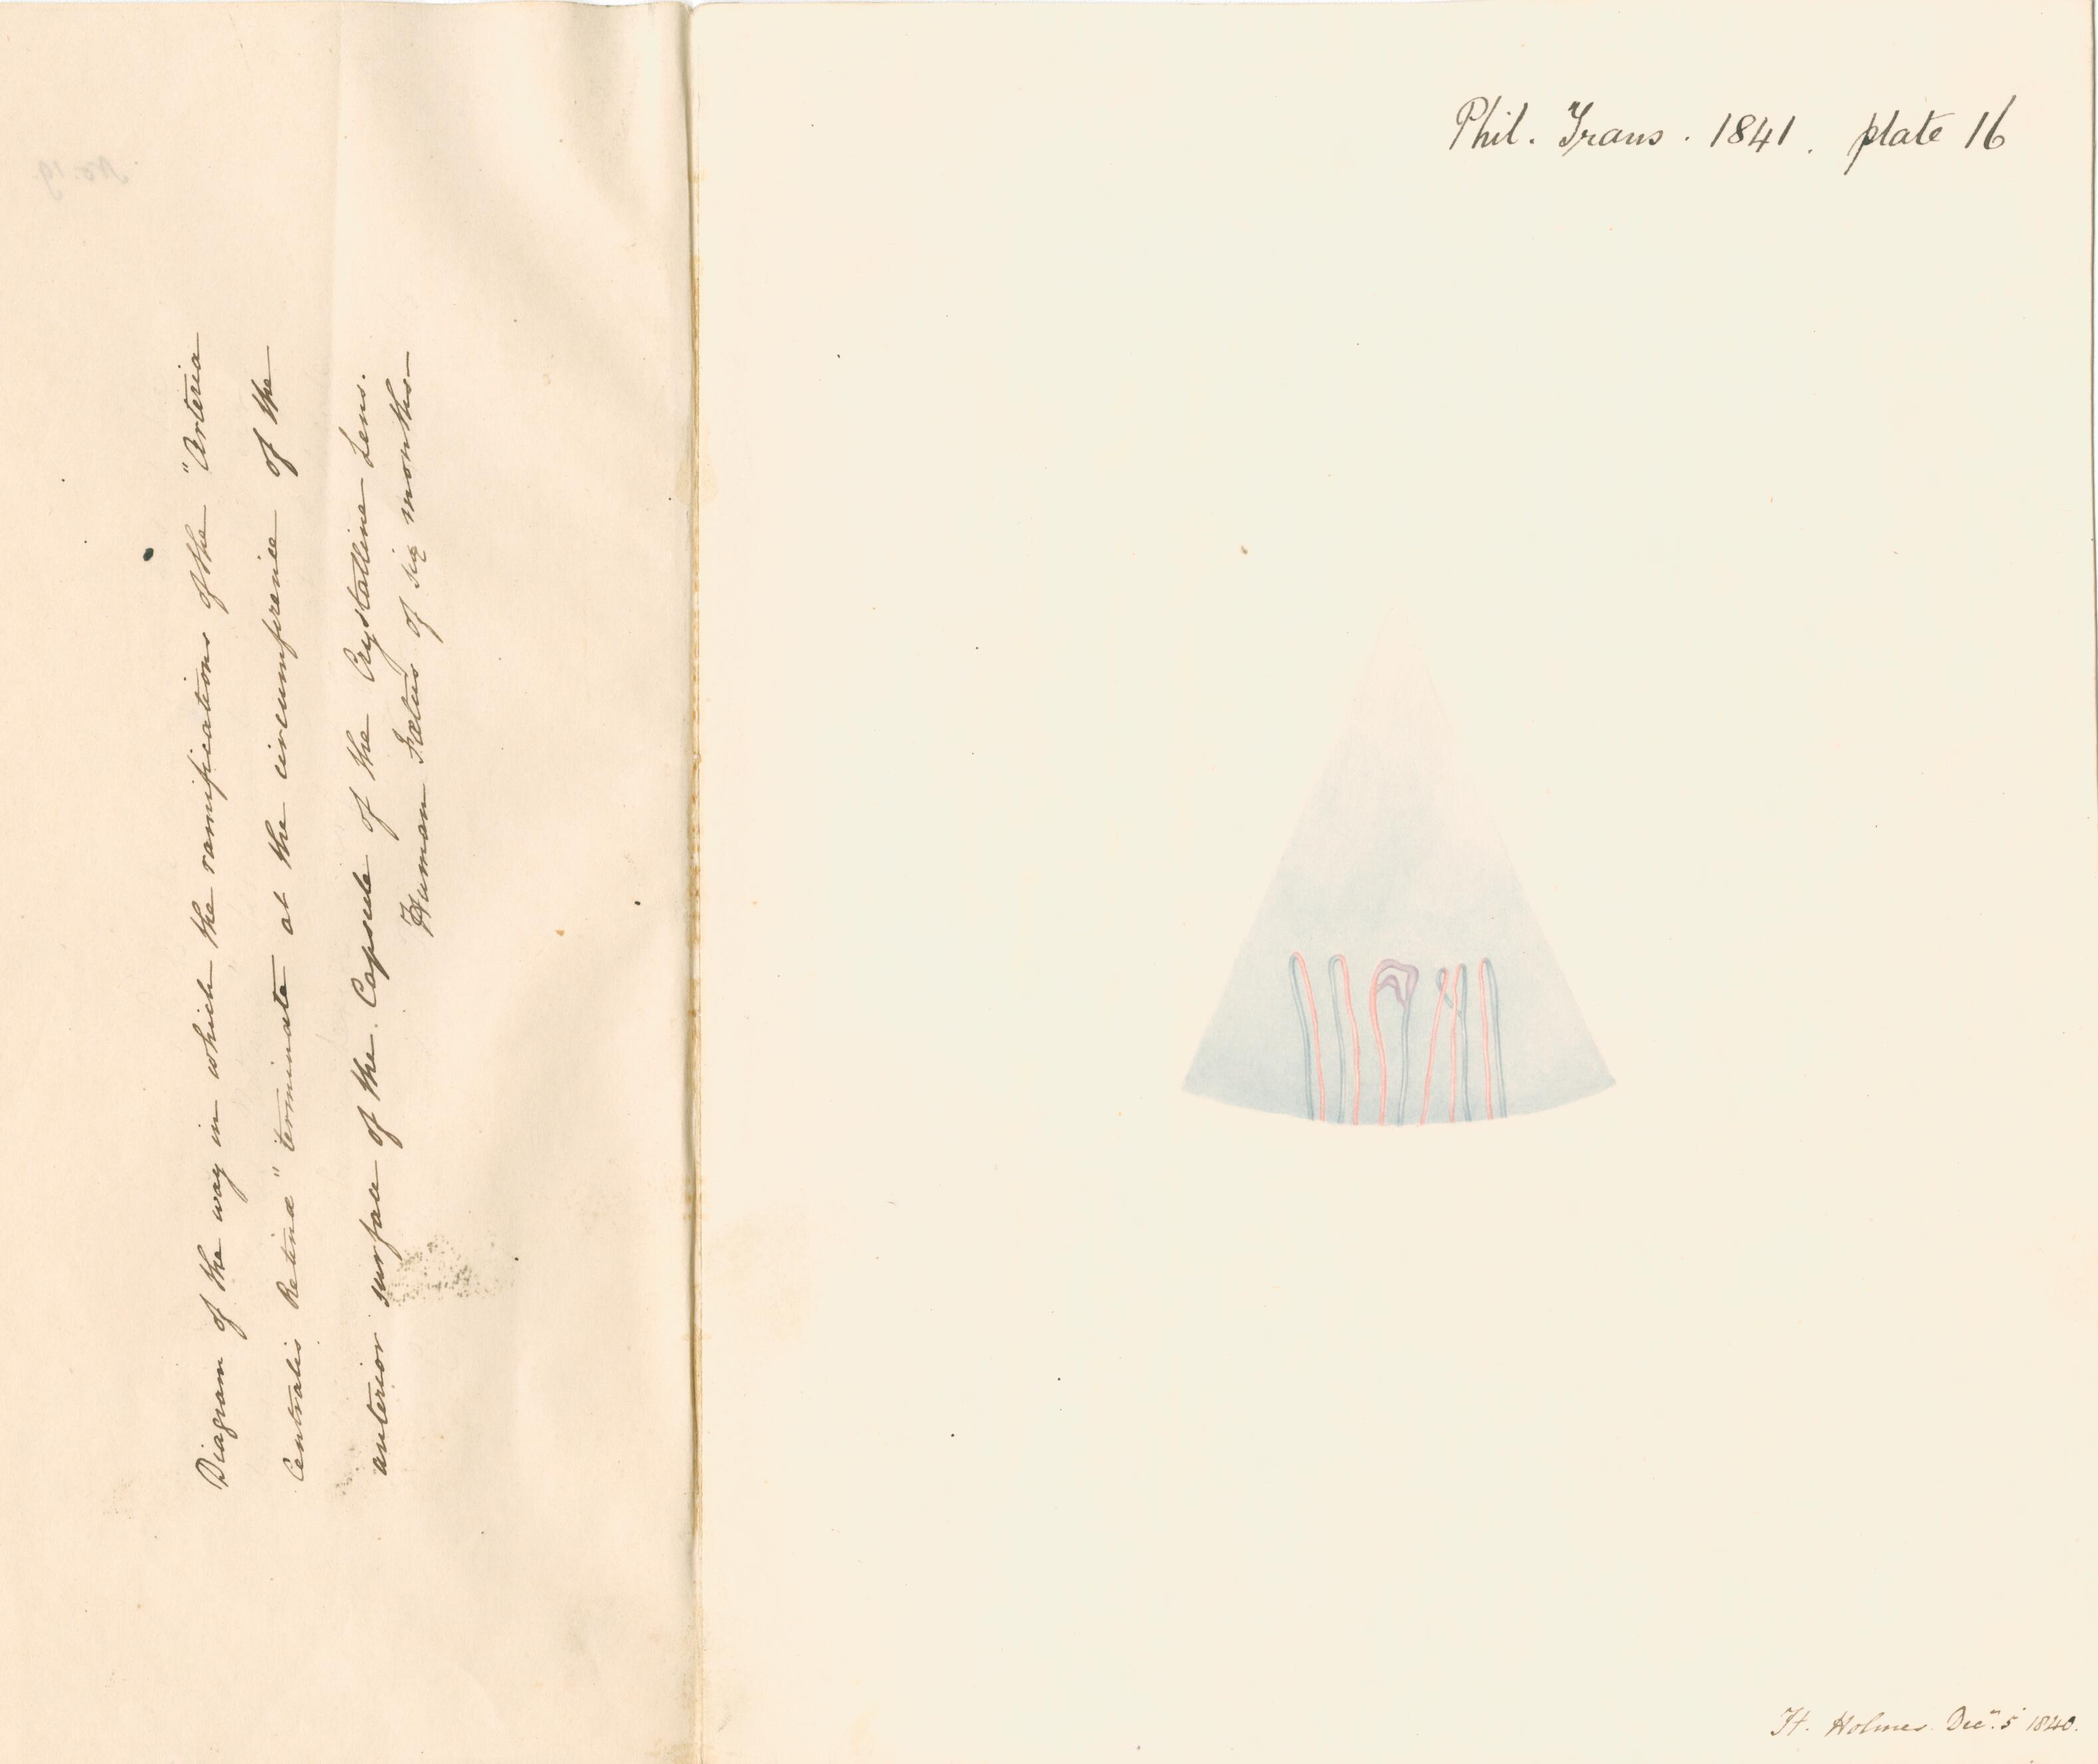 Phil. Trans. 1841. plate 16
Diagram of the way in which the ramifications of the "Arteria
Centralis Retinæ" terminate at the circumference of the
anterior surface of the Capsule of the Crystalline Lens.
Human Fœtus of six months
Ht. Holmes Decr. 5 1840.
No. 19.